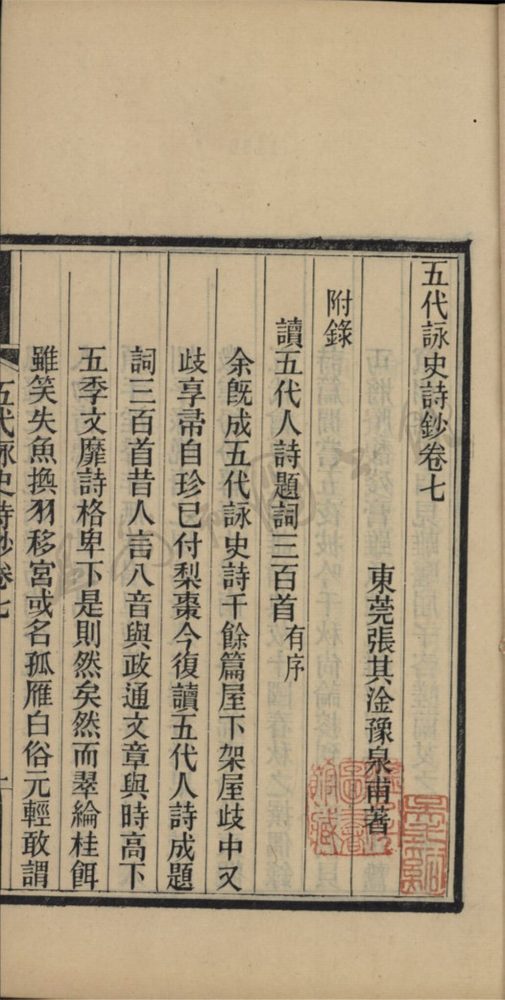 五代詠史詩鈔卷七
東莞張其淦豫泉甫著
附錄
讀五代人詩題詞三百首有序
余既成五代詠史詩千餘篇屋下架屋歧中又
歧享帚自珍已付梨棗今復讀五代人詩成題
詞三百首昔人言八音與政通文章與時高下
五季文靡詩格卑下是則然矣然而翠綸桂餌
雖笑失魚換羽移宮或名孤雁白俗元輕敢謂
五代詠史詩鈔卷七